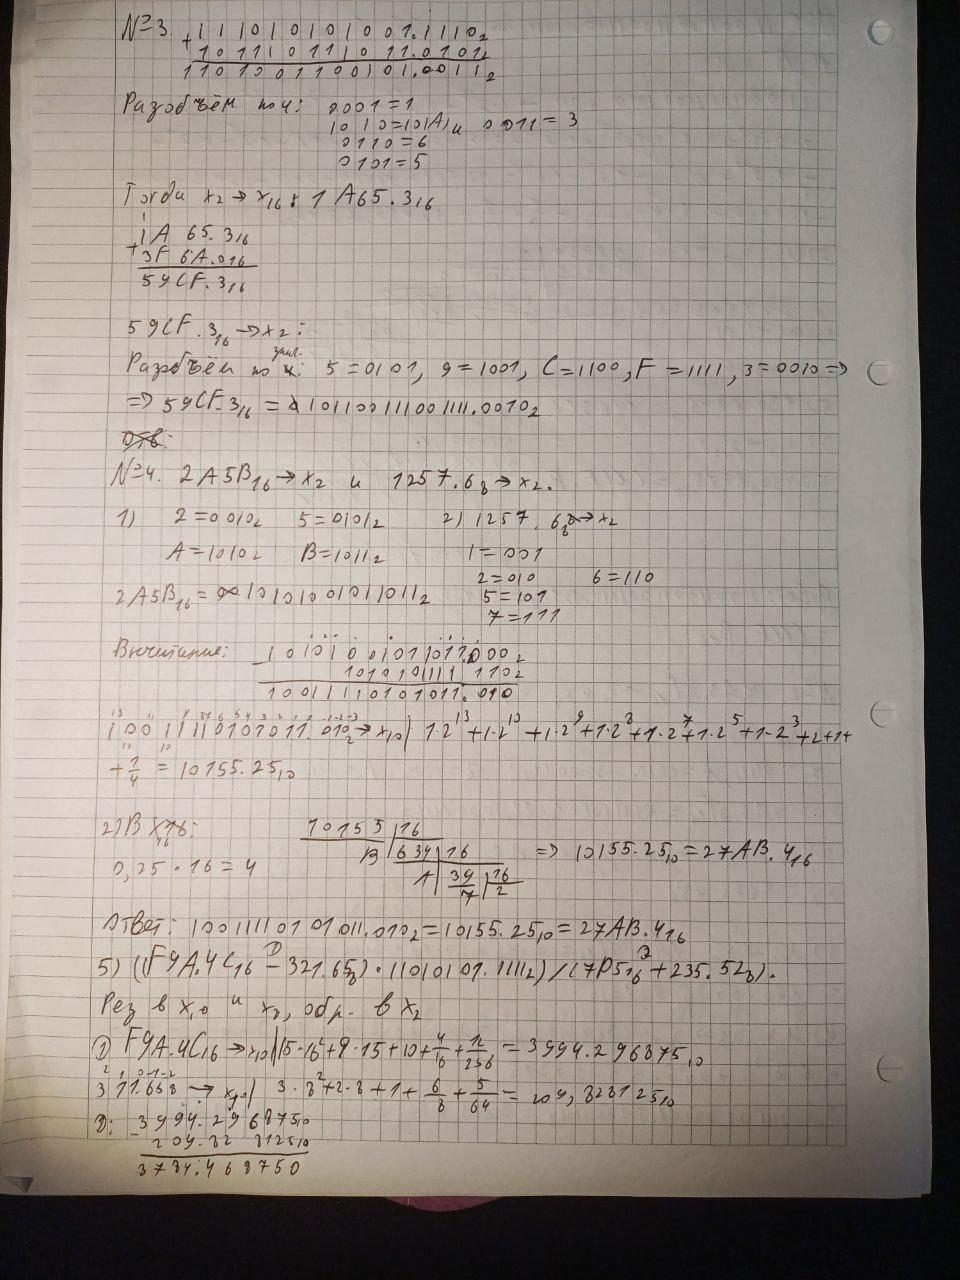 №3. + 1 1 1 0 1 0 1 0 1 0 0 1.1 1 1 0₂
1 0 1 1 1 0 1 1 1 0 1 1.0 1 0 1₂
1 1 0 1 0 0 1 1 0 0 1 0 1.0 0 1 1₂
Разобъём по 4: 0001=1
1010=10(A) и 0011=3
0110=6
0101=5
Тогда x₂→x₁₆: 1A65.3₁₆
+ 1A 65.3₁₆
3F 6A.0₁₆
59CF.3₁₆
59CF.3₁₆→x₂:
Разобъём по 4: 5=0101, 9=1001, C=1100, F=1111, 3=0010=>
=> 59CF.3₁₆ = 101100111001111.0010₂
№4. 2A5B₁₆→x₂ и 1257.6₈→x₂.
1) 2=0010₂ 5=0101₂ 2) 1257.6₈→x₂
A=1010₂ B=1011₂ 1=001
2=010 6=110
2A5B₁₆= 10101001011011₂ 5=101
7=111
Вычитание: - 10101001011011.000₂
1010101111 110₂
10011110101011.010
10011110101011.010₂→x₁₀| 1·2¹³+1·2¹⁰+1·2⁹+1·2⁸+1·2⁷+1·2⁵+1·2³+2+1+
+1/4 = 10155.25₁₀
2) В x₁₆: 10155|16
0,25·16=4 B|634|16 => 10155.25₁₀=27AB.4₁₆
A|39|16
7|2
Ответ: 10011110101011.010₂=10155.25₁₀=27AB.4₁₆
5) (F9A.4C₁₆ − 321.65₈)·(1010101.1111₂)/(7D5₁₆+235.52₈).
Рез в x₁₀ и x₈, обр. в x₂
① F9A.4C₁₆→x₁₀| 15·16²+9·15+10+4/16+12/256 = 3994.296875₁₀
311.65₈→x₁₀| 3·8²+2·8+1+6/8+5/64 = 209,828125₁₀
①: - 3994.296875₁₀
209.82 8125₁₀
3784.468750